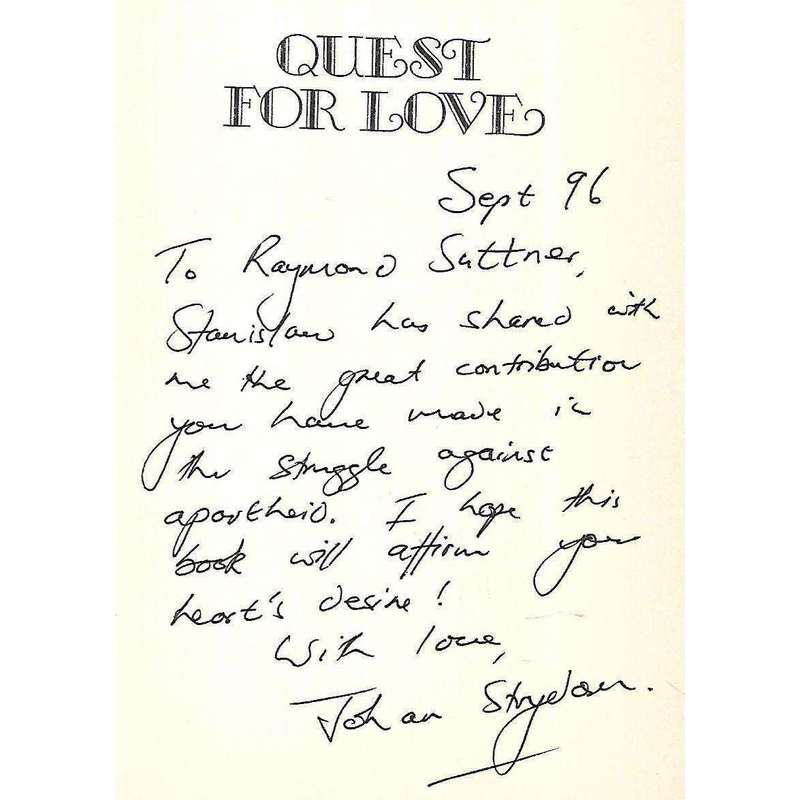 QUEST
FOR LOVE
Sept 96
To Raymond Suttner,
Stanislaw has shared with
me the great contribution
you have made in
the struggle against
apartheid. I hope this
book will affirm your
heart's desire!
With love,
Johan Strydom.